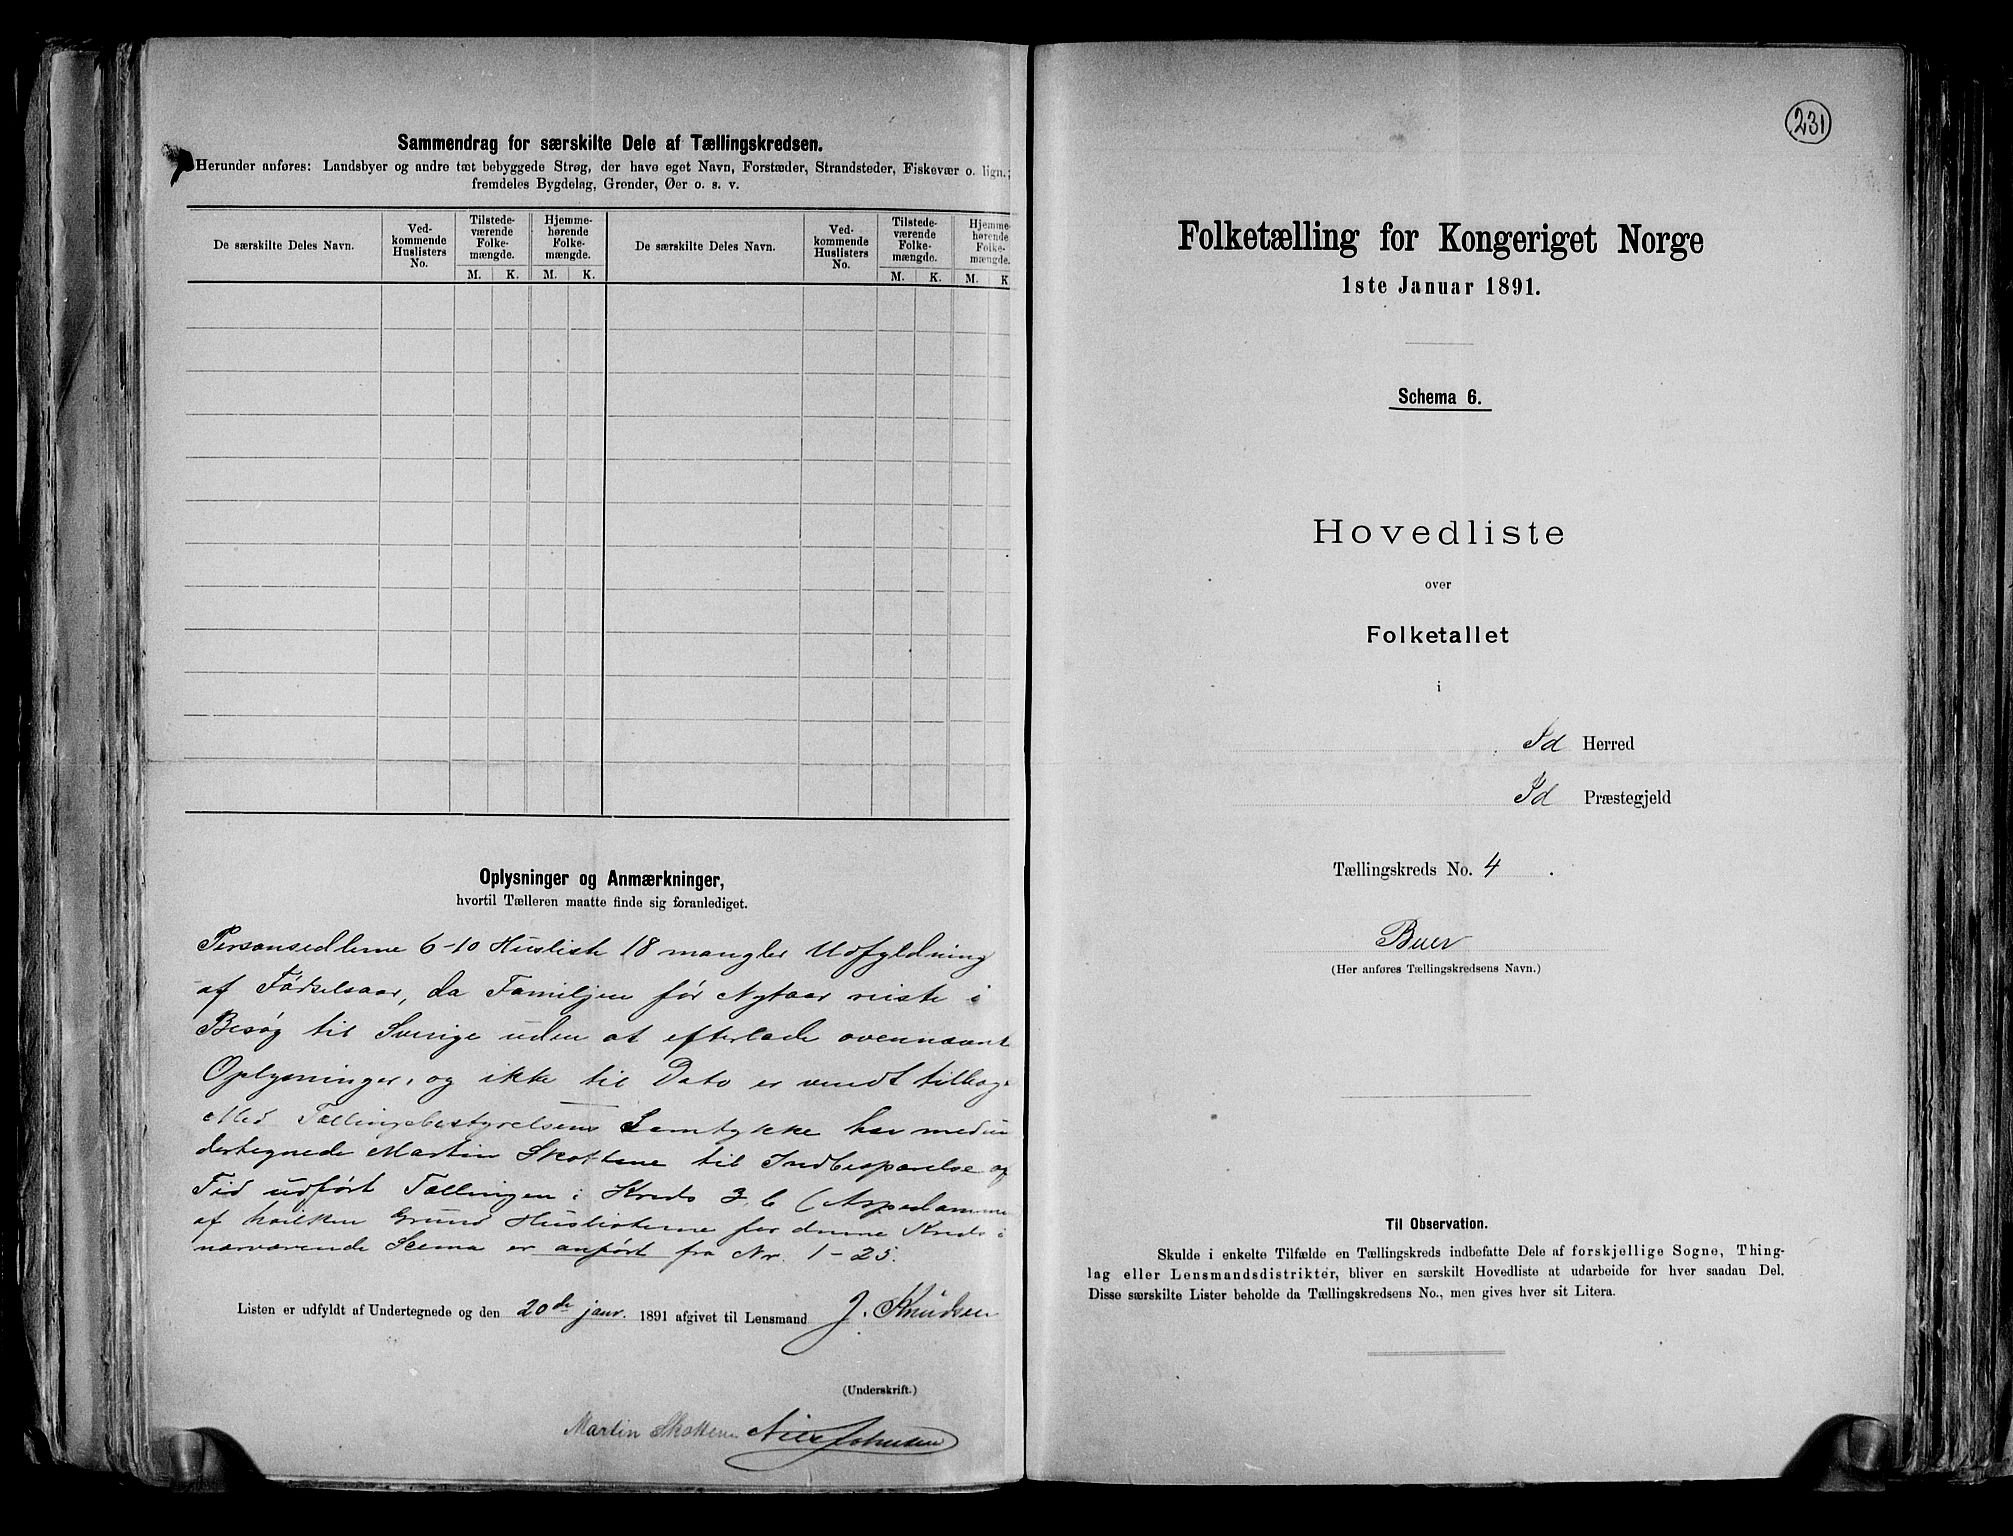 Sammendrag for særskilte Dele af Tællingskredsen.
Herunder anføres: Landsbyer og andre tæt bebyggede Strøg, der have eget Navn, Forstæder, Strandsteder, Fiskevær o. lign.;
fremdeles Bygdelag, Grender, Øer o. s. v.
De særskilte Deles Navn.
Ved-
kommende
Huslisters
No.
Tilstede-
værende
Folke-
mængde.
M. K.
Hjemme-
hørende
Folke-
mængde.
M. K.
De særskilte Deles Navn.
Ved-
kommende
Huslisters
No.
Tilstede-
værende
Folke-
mængde.
M. K.
Hjemme-
hørende
Folke-
mængde.
M. K
Oplysninger og Anmærkninger,
hvortil Tælleren maatte finde sig foranlediget.
Personsedlerne 6-10 Husliste 18 mangler Udfyldning
af Fødselsaar, da Familjen før Nytaar reiste i
Besøg til Sverige uden at efterlade ovennævnt
Oplysninger, og ikke til Dato er vendt tilbag
Med Tællingsbestyrelsens Samtykke har medun
dertegnede Martin Skottene til Indbesparelse og
Tid udført Tællingen i Kreds 3, b (Aspedamme
af hvilken Grund Huslisterne for denne Kreds i
nærværende Scema er anført fra Nr. 1-25.
Listen er udfyldt af Undertegnede og den 20de janr. 1891 afgivet til Lensmand J. Knudsen
(Underskrift.)
Martin Skottene Nils Johnsen
231
Folketælling for Kongeriget Norge
1ste Januar 1891.
Schema 6.
Hovedliste
over
Folketallet
i
Id Herred
Id Præstegjeld
Tællingskreds No. 4.
Buer
(Her anføres Tællingskredsens Navn.)
Til Observation.
Skulde i enkelte Tilfælde en Tællingskreds indbefatte Dele af forskjellige Sogne, Thing-
lag eller Lensmandsdistrikter, bliver en særskilt Hovedliste at udarbeide for hver saadan Del.
Disse særskilte Lister beholde da Tællingskredsens No., men gives hver sit Litera.